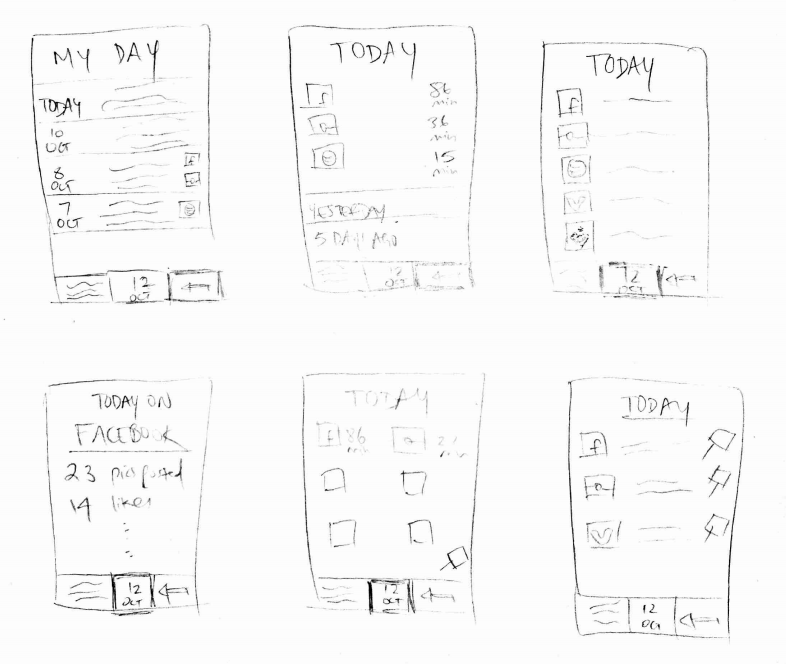 MY DAY
TODAY
10
OCT
8
OCT
f
7
OCT
12
OCT
TODAY
f
86
min
36
min
15
min
YESTERDAY
5 DAY AGO
12
OCT
TODAY
f
12
OCT
TODAY ON
FACEBOOK
23 pics posted
14 likes
12
OCT
TODAY
f 86
min
12
OCT
TODAY
f
12
OCT